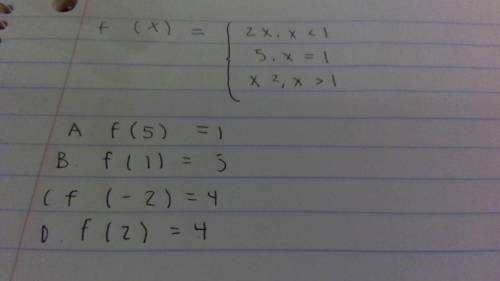 f (x) = { 2x, x < 1
5, x = 1
x 2, x > 1
A f(5) = 1
B. f(1) = 5
C. f (-2) = 4
D. f(2) = 4